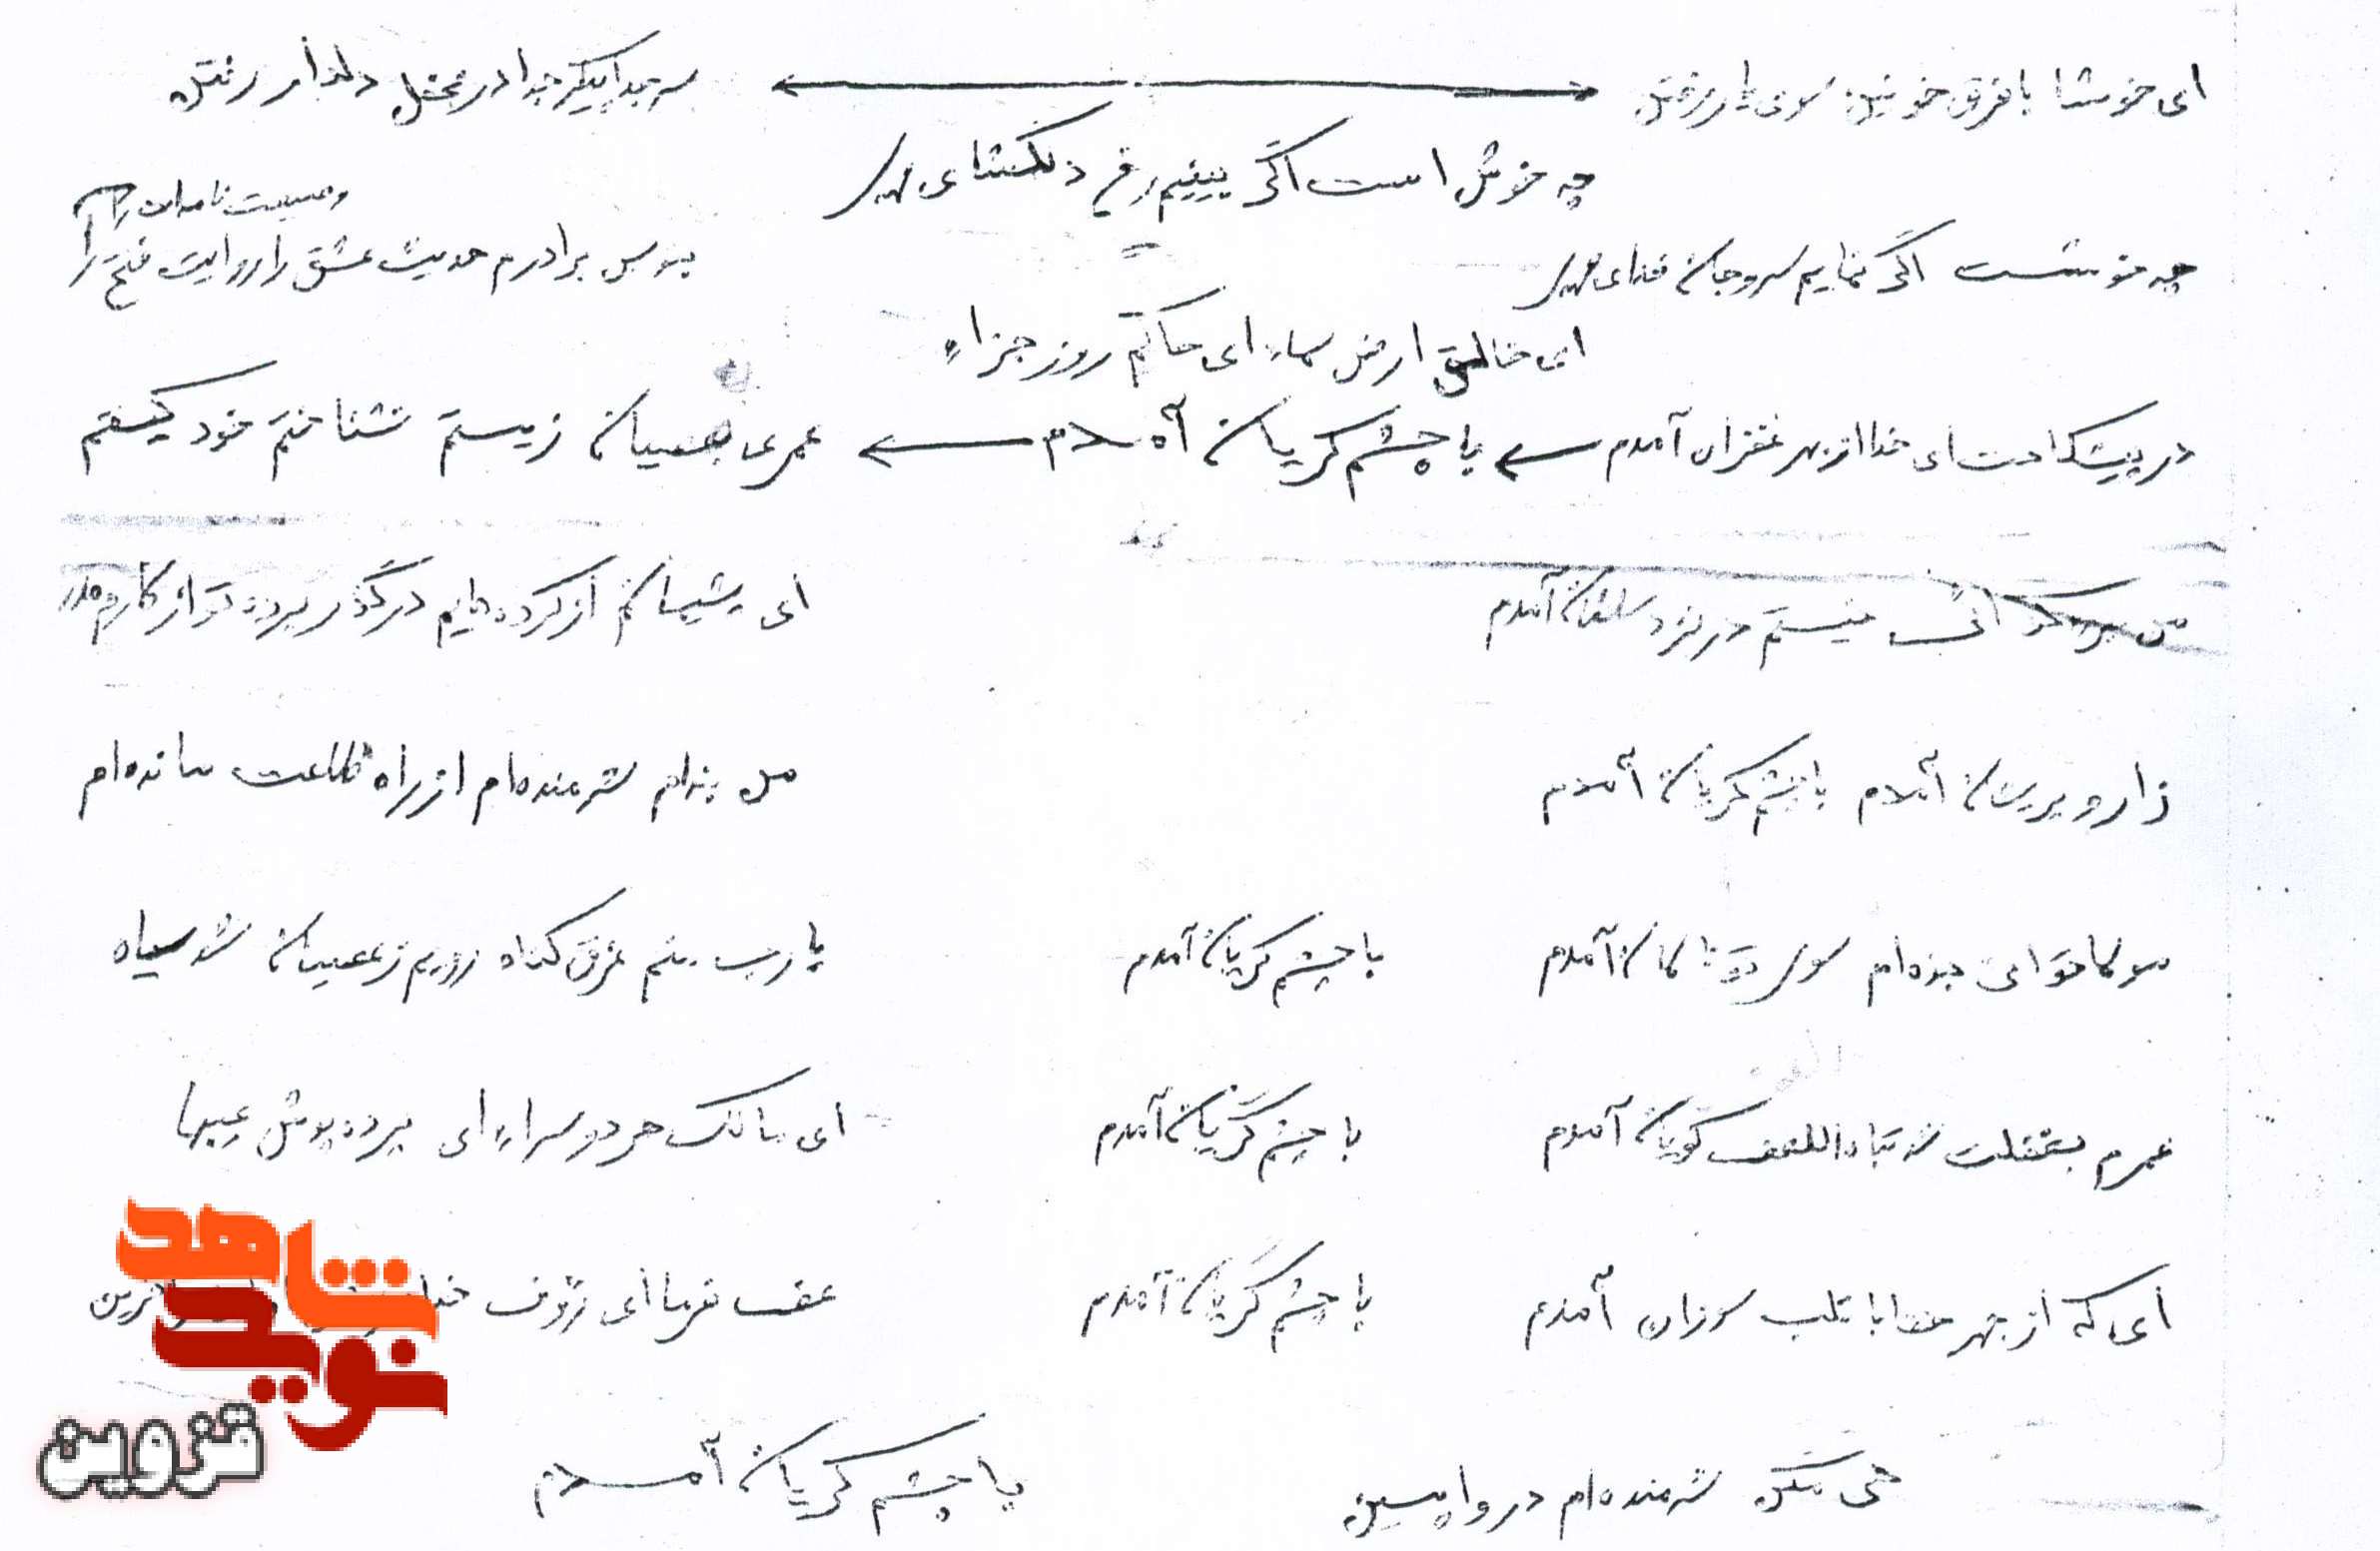 ای خوشا با فرق خونین سوی یار رفتن سر جدا پیکر جدا در محفل دلدار رفتن
چه خوش است اگر ببینم رخ دلگشای
وصیت نامه
چه خوشست اگر نمایم سر و جان فدای برادرم حدیث عشق را روایت فتح را
ای خالق ارض سماء ای حاکم روز جزاء
در پیشگاهت ای خدا از بهر غفران آمدم با چشم گریان آمدم عمری بعصیان زیستم نشناختم خود کیستم
من نیستم در نزد سلطان آمدم ای پشیمان از کرده هایم درگذر پرده تو از کارم مدر
زار و پریشان آمدم با چشم گریان آمدم من بنده ام شرمنده ام از راه طاعت مانده ام
مولا تو ای بنده ام سوی تو نالان آمدم با چشم گریان آمدم یا رب منم غرق گناه رویم ز عصیان شد سیاه
عمرم بغفلت شد تباه العفو گویان آمدم با چشم گریان آمدم ای مالک هر دو سراء ای پرده پوش عیبها
ای که از بهر خدا با قلب سوزان آمدم با چشم گریان آمدم عفو فرما ای رئوف
شرمنده ام در واپسین با چشم گریان آمدم
شاهد
نوید
قزوین